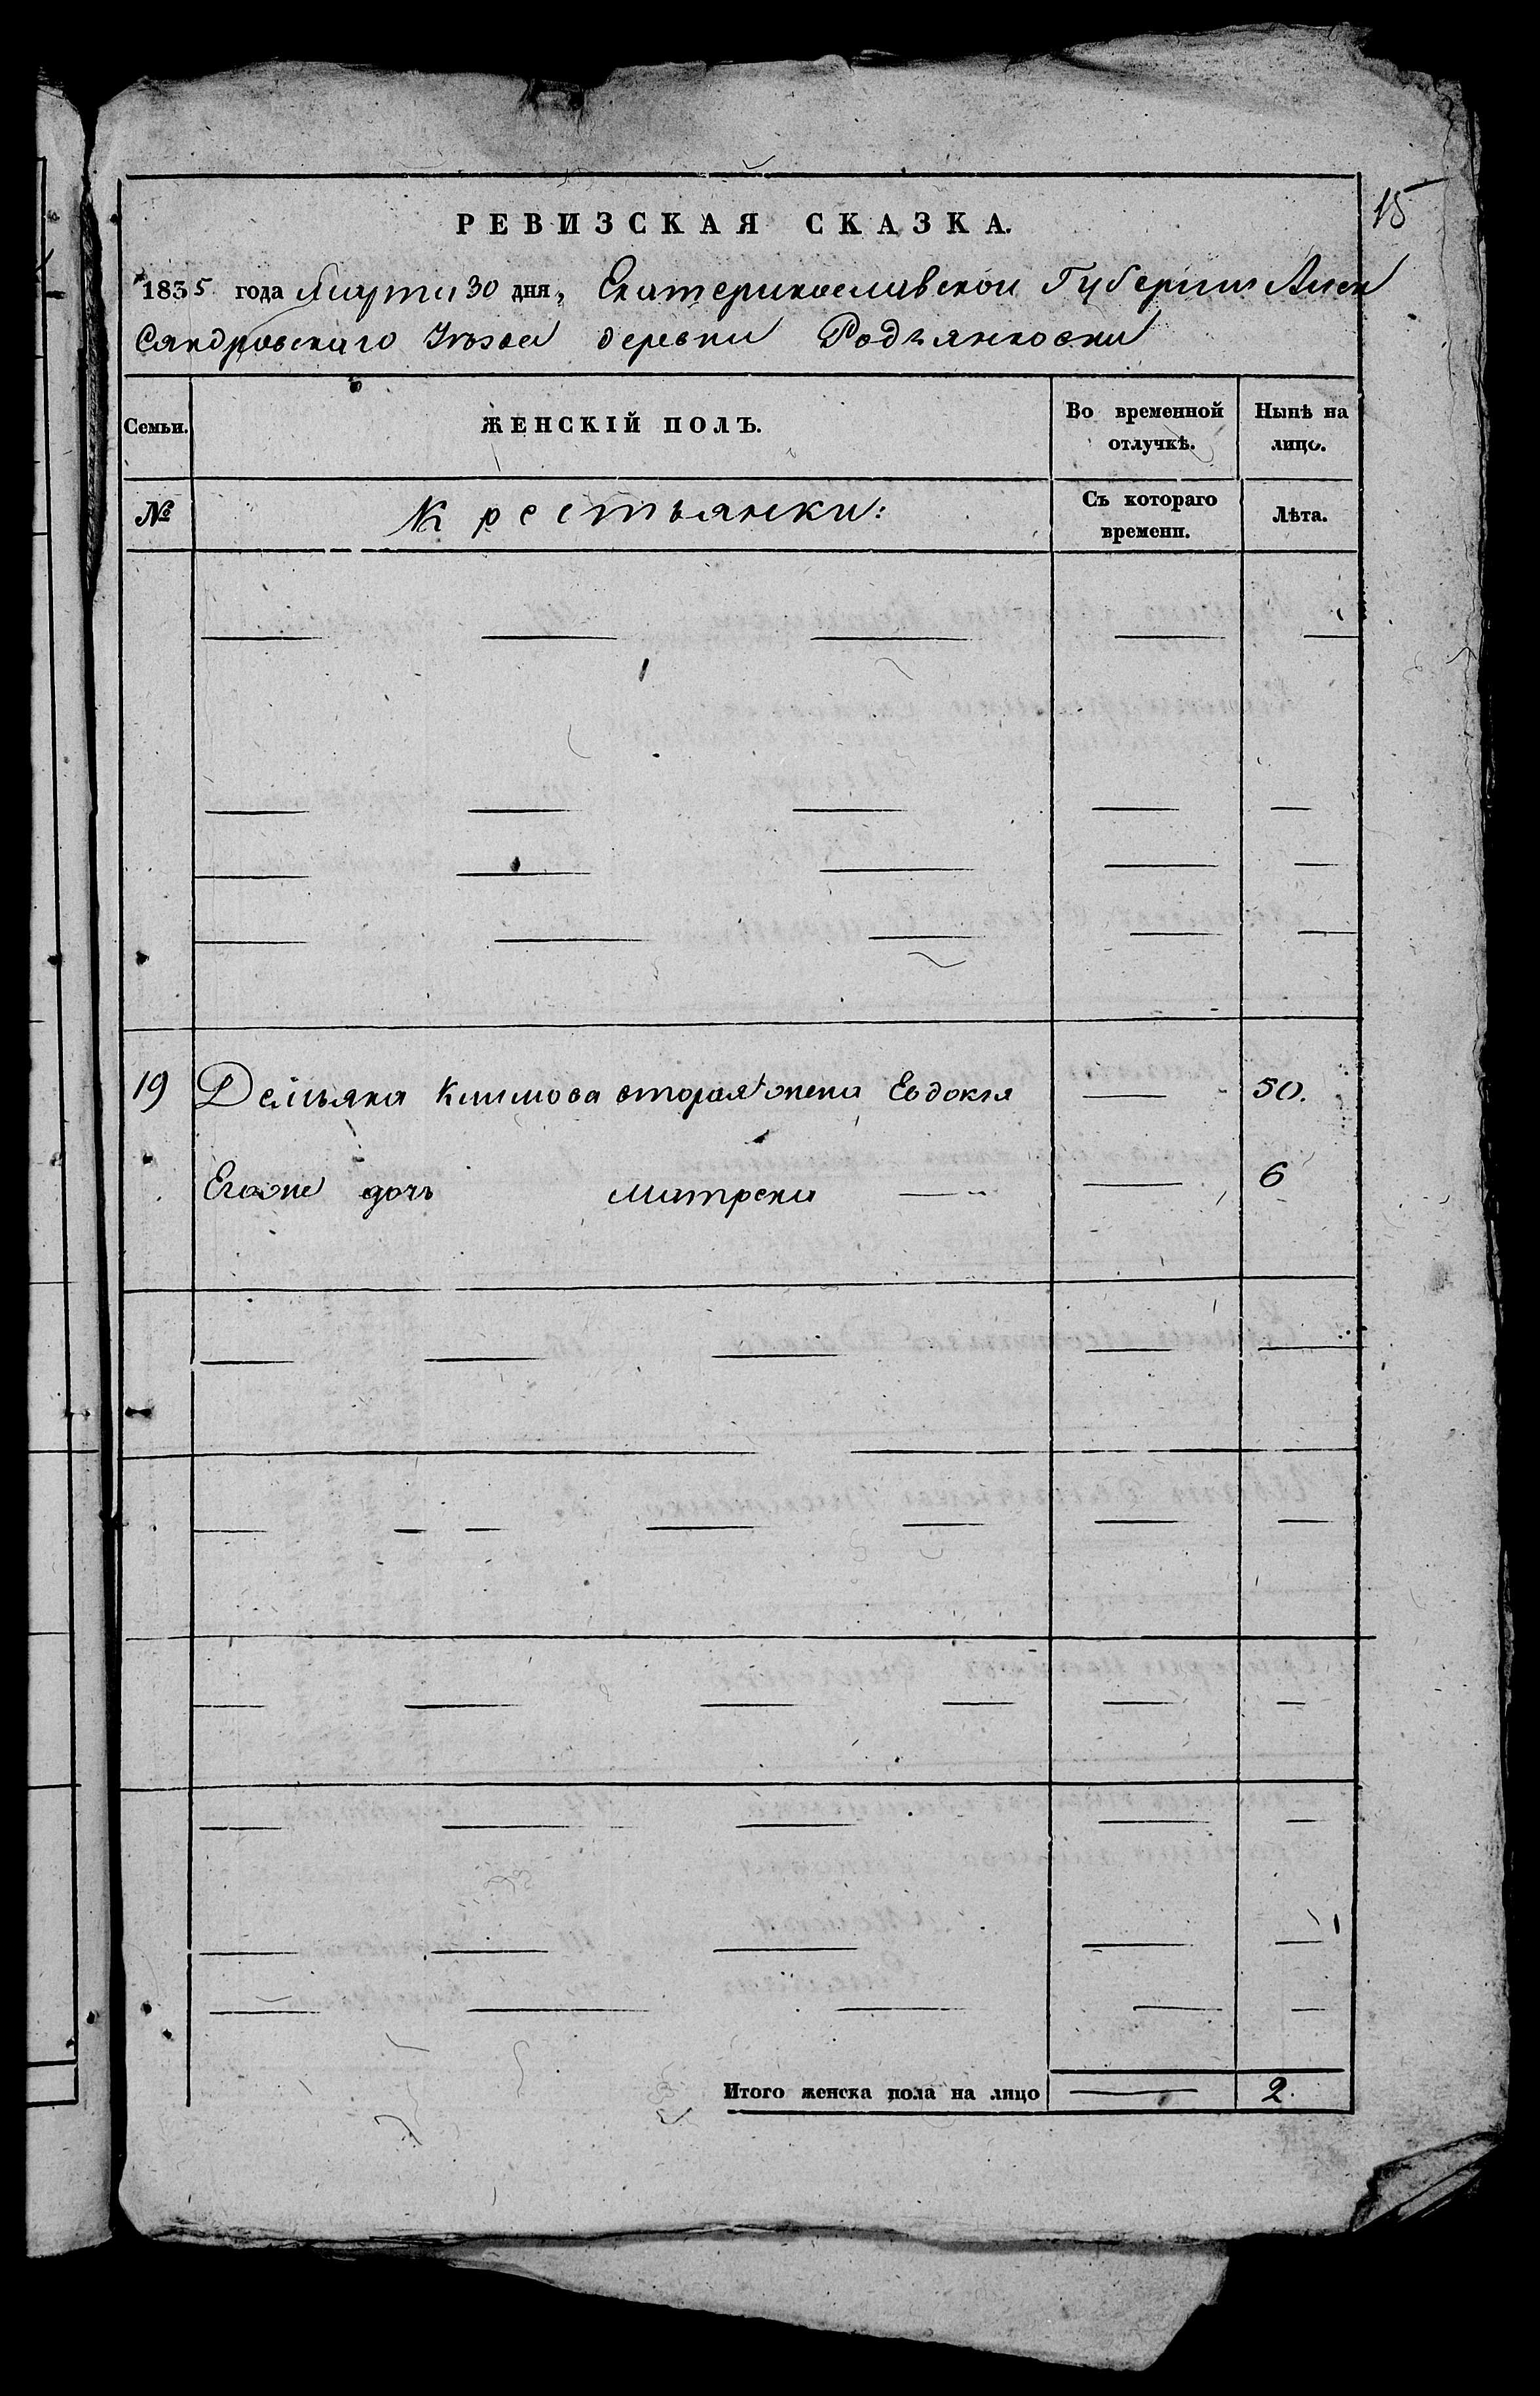 15
РЕВИЗСКАЯ СКАЗКА.
1835 года марта 30 дня, Екатеринославской Губернии Алек
сандровскаго Уѣзда деревни Родзянковки
Семьи. ЖЕНСКІЙ ПОЛЪ. Во временной отлучкѣ. Нынѣ на лицо.
№ Крестьянки: Съ котораго времени. Лѣта.
19 Демьяна Климова вторая жена Евдокія — 50.
Егоже дочь Матрена — — 6
Итого женска пола на лицо — 2.